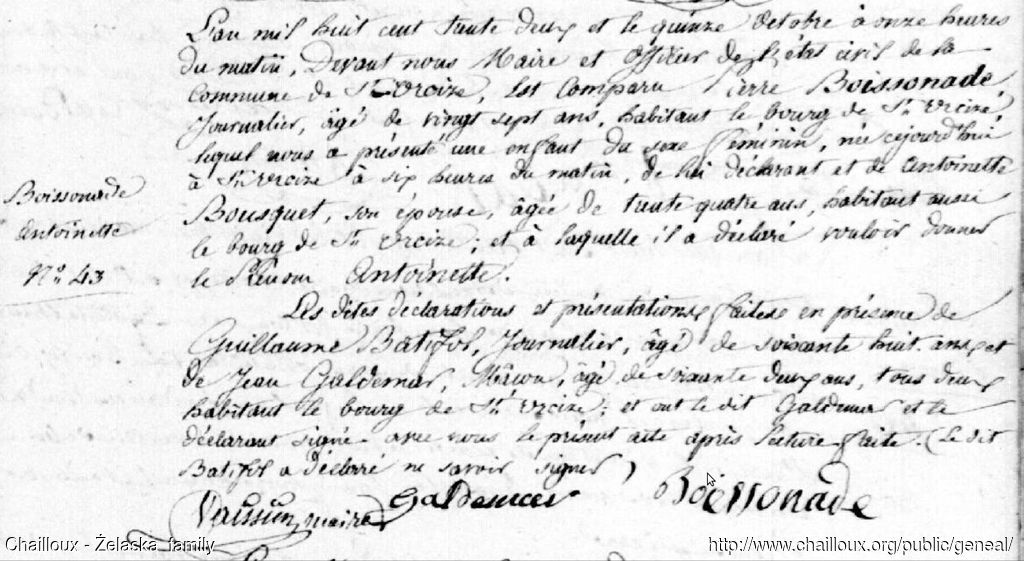 L'an mil huit cent trente deux et le quinze octobre à onze heures
du matin, Devant nous Maire et Officier de l'état civil de la
Commune de St Urcize, Est Comparu Pierre Boissonade,
Journalier, âgé de vingt sept ans, habitant le bourg de St Urcize,
lequel nous a présenté une enfant du sexe féminin, née cejourd'hui
à St Urcize à six heures du matin, de lui déclarant et de Antoinette
Bousquet, son épouse, âgée de trente quatre ans, habitant aussi
le bourg de St Urcize; et à laquelle il a déclaré vouloir donner
le Prénom Antoinette.
Boissonade
Antoinette
No. 43
Les dites déclarations et présentations faites en présence de
Guillaume Batifol, Journalier, âgé de soixante huit ans, et
de Jean Galdemar, Mâcon, âgé de soixante deux ans, tous deux
habitant le bourg de St Urcize; et ont le dit Galdemar et le
déclarant signé avec nous le présent acte après lecture faite. (Le dit
Batifol a déclaré ne savoir signer)
maire Galdemar Boissonade
Chailloux - Żelaska family
http://www.chailloux.org/public/geneal/